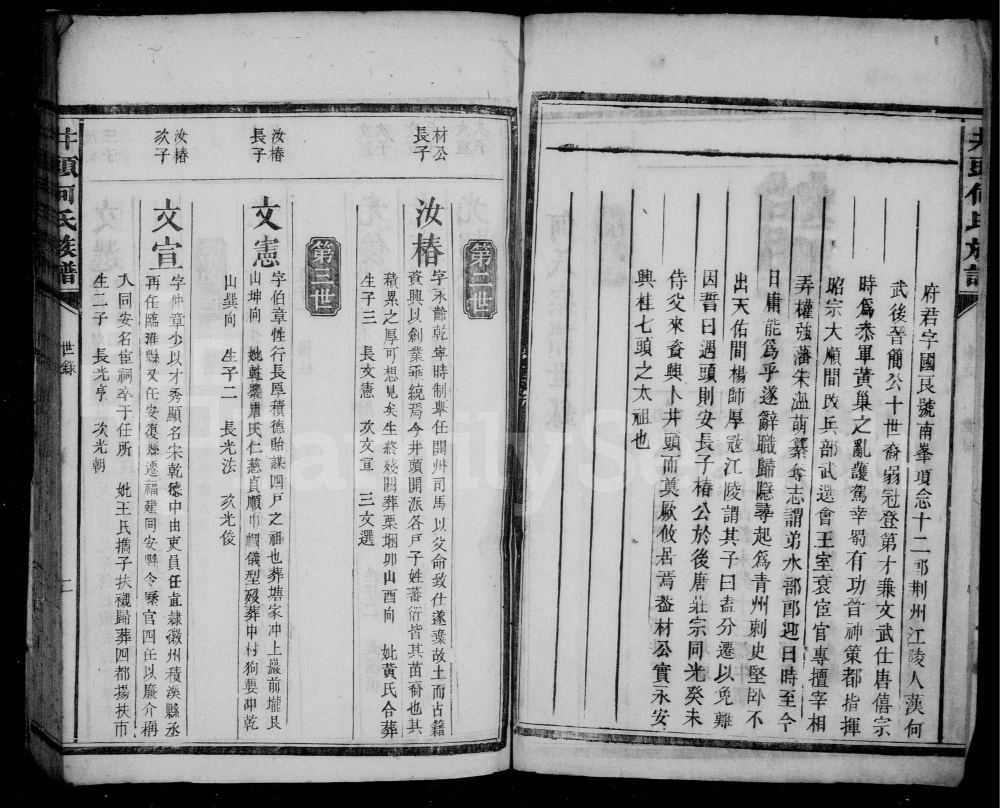 府君字國良號南峯項念十二郎荆州江陵人漢何
武後晉簡公十世裔弱冠登第才兼文武仕唐僖宗
時爲叅軍黃巢之亂護駕幸蜀有功晉神策都指揮
昭宗大順間改兵部武選會王室衰宦官專擅宰相
弄權強藩朱溫萌纂奪志謂弟水部郎迎日時至今
日庸能爲乎遂辭職歸隱尋起爲青州刺史堅臥不
出天佑間楊師厚寇江陵謂其子曰盍分遷以免難
因誓曰遇頭則安長子椿公於後唐莊宗同光癸未
侍父來資興卜井頭而奠厥攸居焉葢材公實永安
興桂七頭之太祖也
第二世
材公長子
汝椿
字永齡乾寧時制舉任閬州司馬以父命致仕遂棄故土而古籍
資興以創業垂統焉今井頭開派各戶子姓蕃衍皆其苗裔也其
積累之厚可想見矣生終殘闕葬栗堋卯山酉向 妣黃氏合葬
生子三 長文憲 次文宣 三文選
第三世
汝椿長子
文憲
字伯章性行長厚積德貽謀四戶之祖也葬塘家冲上巖前壠艮
山坤向 妣乾 唐氏仁慈貞順巾幗儀型殁葬中村狗要冲乾
山巽向 生子二 長光法 次光俊
汝椿次子
文宣
字仲章少以才秀顯名宋乾德中由吏員任直隷徽州積溪縣丞
再任臨淮縣又任安復縣遷福建同安縣令歷官四任以廉介稱
入同安名宦祠卒于任所 妣王氏擕子扶櫬歸葬四都揚扶市
生二子 長光亨 次光朝
井頭何氏族譜
世錄
井頭何氏族譜